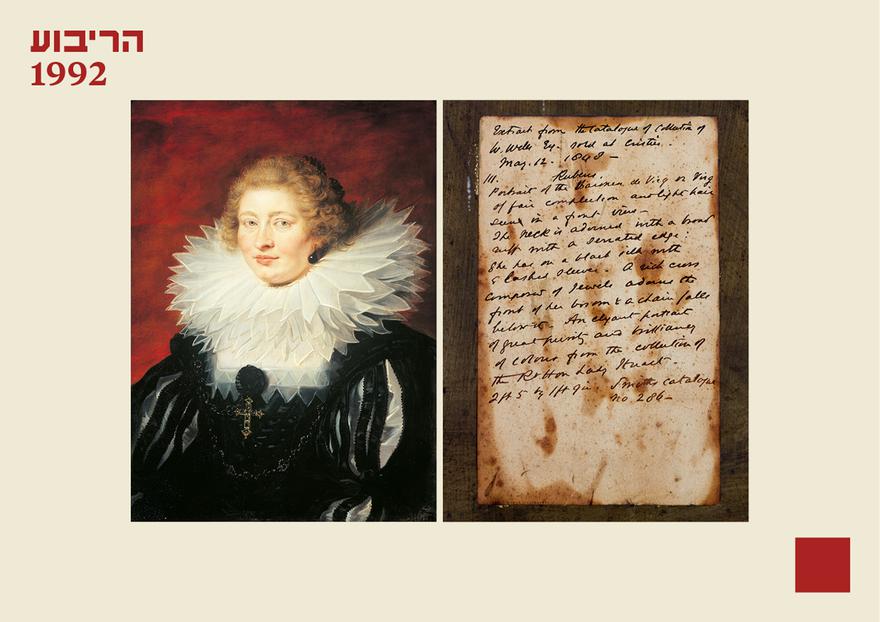 הריבוע
1992
Extract from the Catalogue of Collection of
W. Wells Esq. sold at Cristies.
May. 12. 1848 —
111. Rubens.
Portrait of the Baroness de Virg or Virg
of fair complection and light hair
seen in a front view —
The neck is adorned with a broad
ruff with a serrated edge:
She has on a black silk with
slashed sleeves. A rich cross
composed of Jewels adorns the
front of her bosom & a chain falls
below it. An elegant portrait
of great purity and brilliancy
of colour from the collection of
the Rt Hon Lady Stuart.
2ft 5 by 1ft 9in. Smiths catalogue
no 286 —